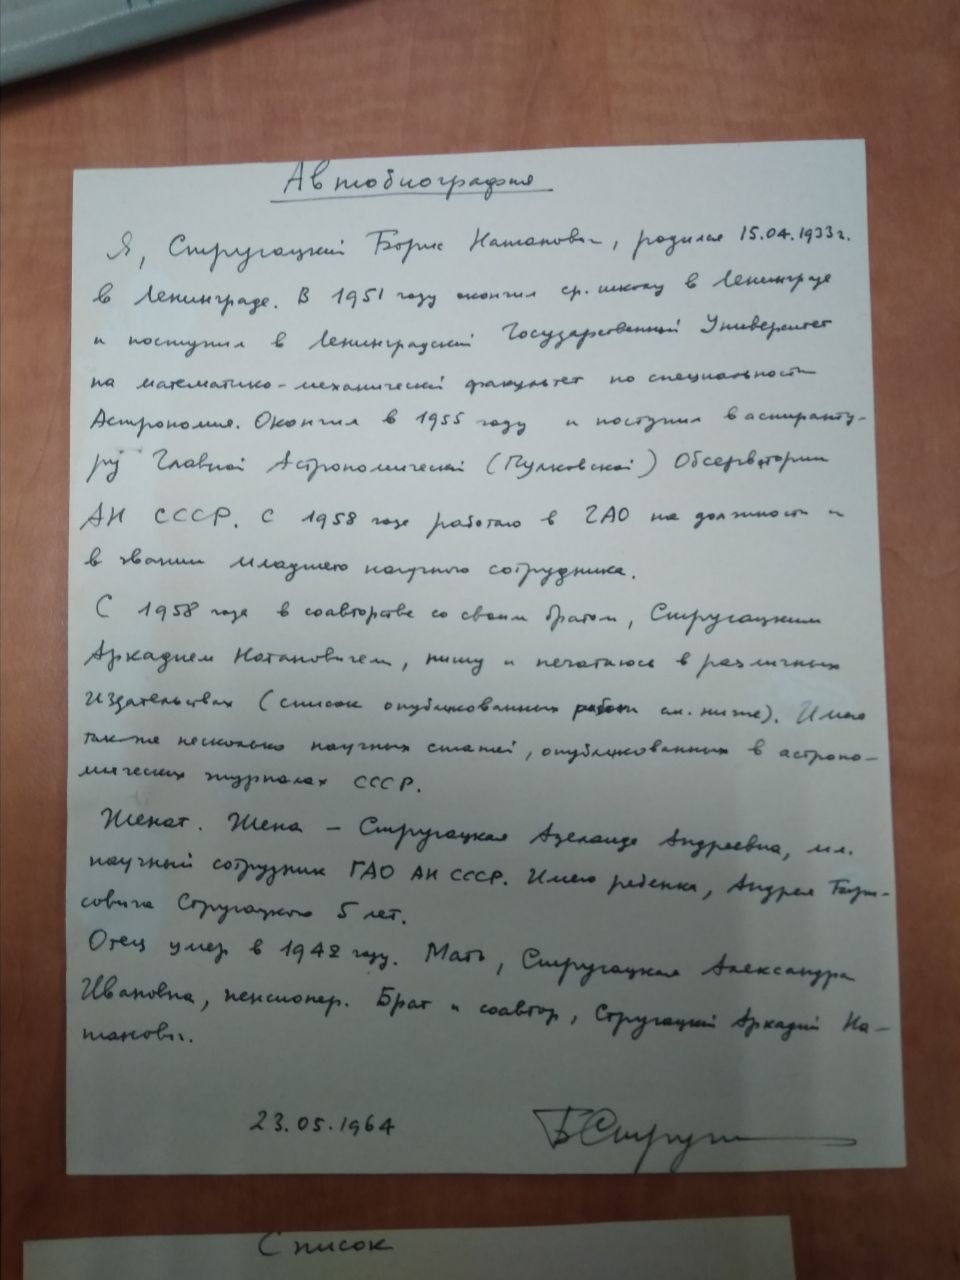 Автобиография
Я, Стругацкий Борис Натанович, родился 15.04.1933г.
в Ленинграде. В 1951 году окончил ср. школу в Ленинграде
и поступил в Ленинградский Государственный Университет
на математико-механический факультет по специальности
Астрономия. Окончил в 1955 году и поступил в аспиранту-
ру Главной Астрономической (Пулковской) Обсерватории
АН СССР. С 1958 года работаю в ГАО на должности и
в звании младшего научного сотрудника.
С 1958 года в соавторстве со своим братом, Стругацким
Аркадием Натановичем, пишу и печатаюсь в различных
издательствах (список опубликованных работ см. ниже). Имею
также несколько научных статей, опубликованных в астроно-
мических журналах СССР.
Женат. Жена - Стругацкая Аделаида Андреевна, мл.
научный сотрудник ГАО АН СССР. Имею ребенка, Андрея Бори-
совича Стругацкого 5 лет.
Отец умер в 1942 году. Мать, Стругацкая Александра
Ивановна, пенсионер. Брат и соавтор, Стругацкий Аркадий На-
танович.
23.05.1964 БСтруг
Список